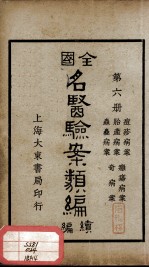 第六册
痧疹病案
胎產病案
蟲蠱病案
奇病案
全國
名醫驗案類編
續編
上海大東書局印行
5581